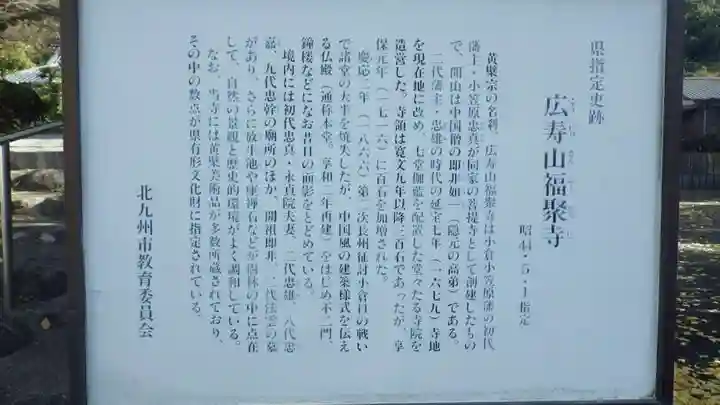 県指定史跡
広寿山福聚寺
昭44・5・1指定
黄檗宗の名刹、広寿山福聚寺は小倉小笠原藩の初代
藩主・小笠原忠真が同家の菩提寺として創建したもの
で、開山は中国僧の即非如一（隠元の高弟）である。
二代藩主・忠雄の時代の延宝七年（一六七九）寺地
を現在地に改め、七堂伽藍を配置した堂々たる寺院を
造営した。寺領は寛文九年以降三百石であったが、享
保元年（一七一六）に百石を加増された。
慶応二年（一八六六）第二次長州征討小倉口の戦い
で諸堂の大半を焼失したが、中国風の建築様式を伝え
る仏殿（通称本堂。享和二年再建）をはじめ不二門、
鐘楼などになお昔日の面影をとどめている。
境内には初代忠真・永貞院夫妻、二代忠雄、八代忠
嘉、九代忠幹の廟所のほか、開祖即非、二代法雲の墓
があり、さらに放生池や座禅石などが樹林の中に点在
して、自然の景観と歴史的環境がよく調和している。
なお、当寺には黄檗美術品が多数所蔵されており、
その中の数点が県有形文化財に指定されている。
北九州市教育委員会